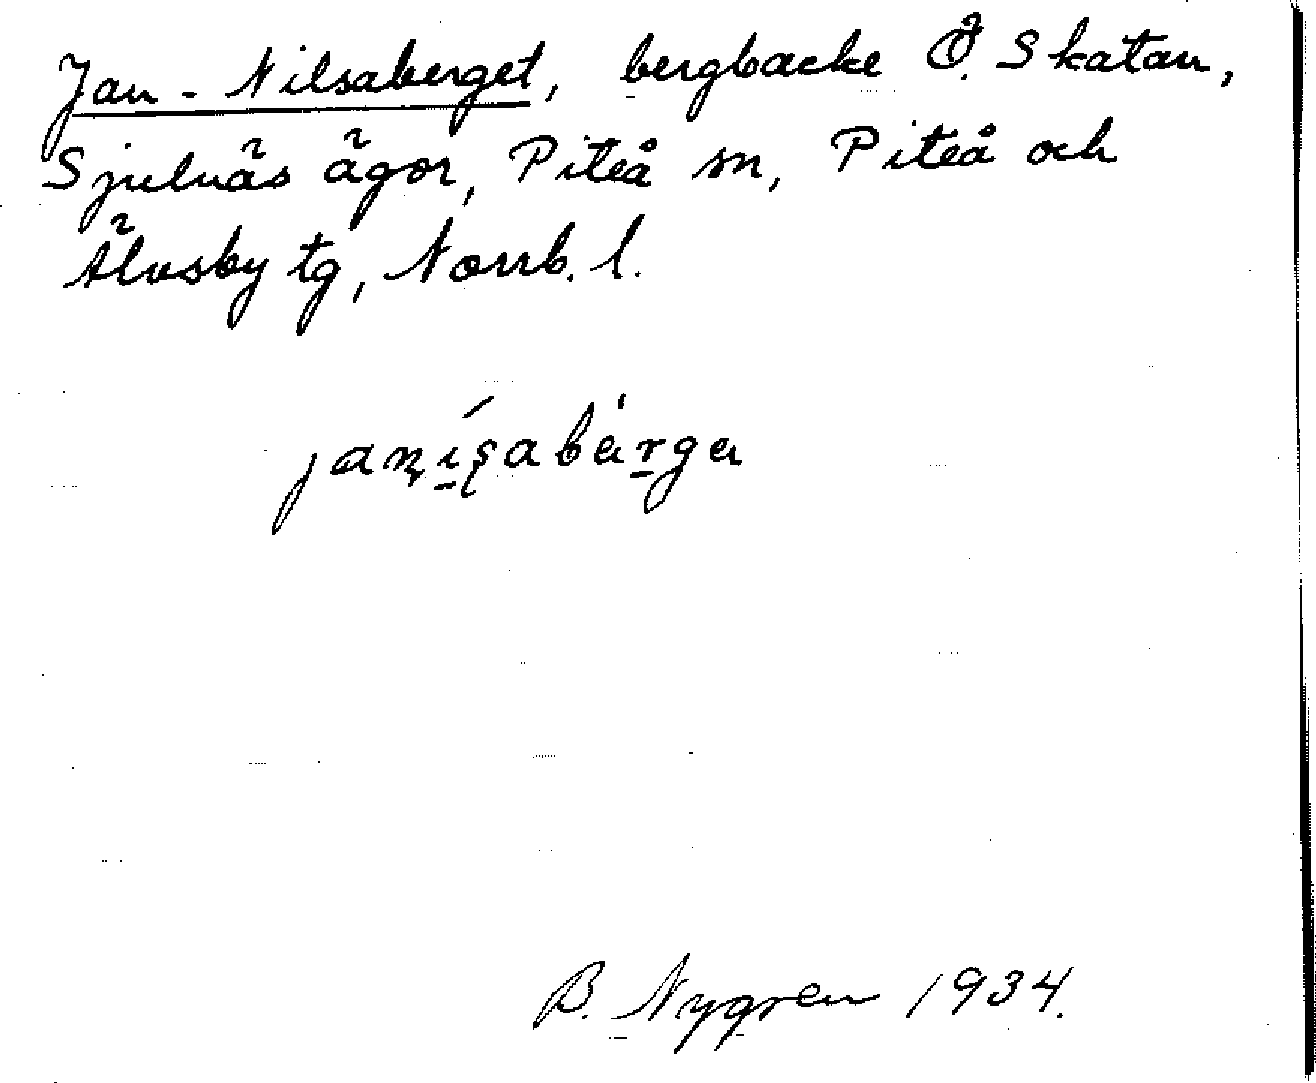 Jan-Nilsaberget, bergbacke Ö. Skatan,
Sjulnäs ägor, Piteå sn, Piteå och
Älvsby tg, Norrb. l.
B. Nygren 1934.